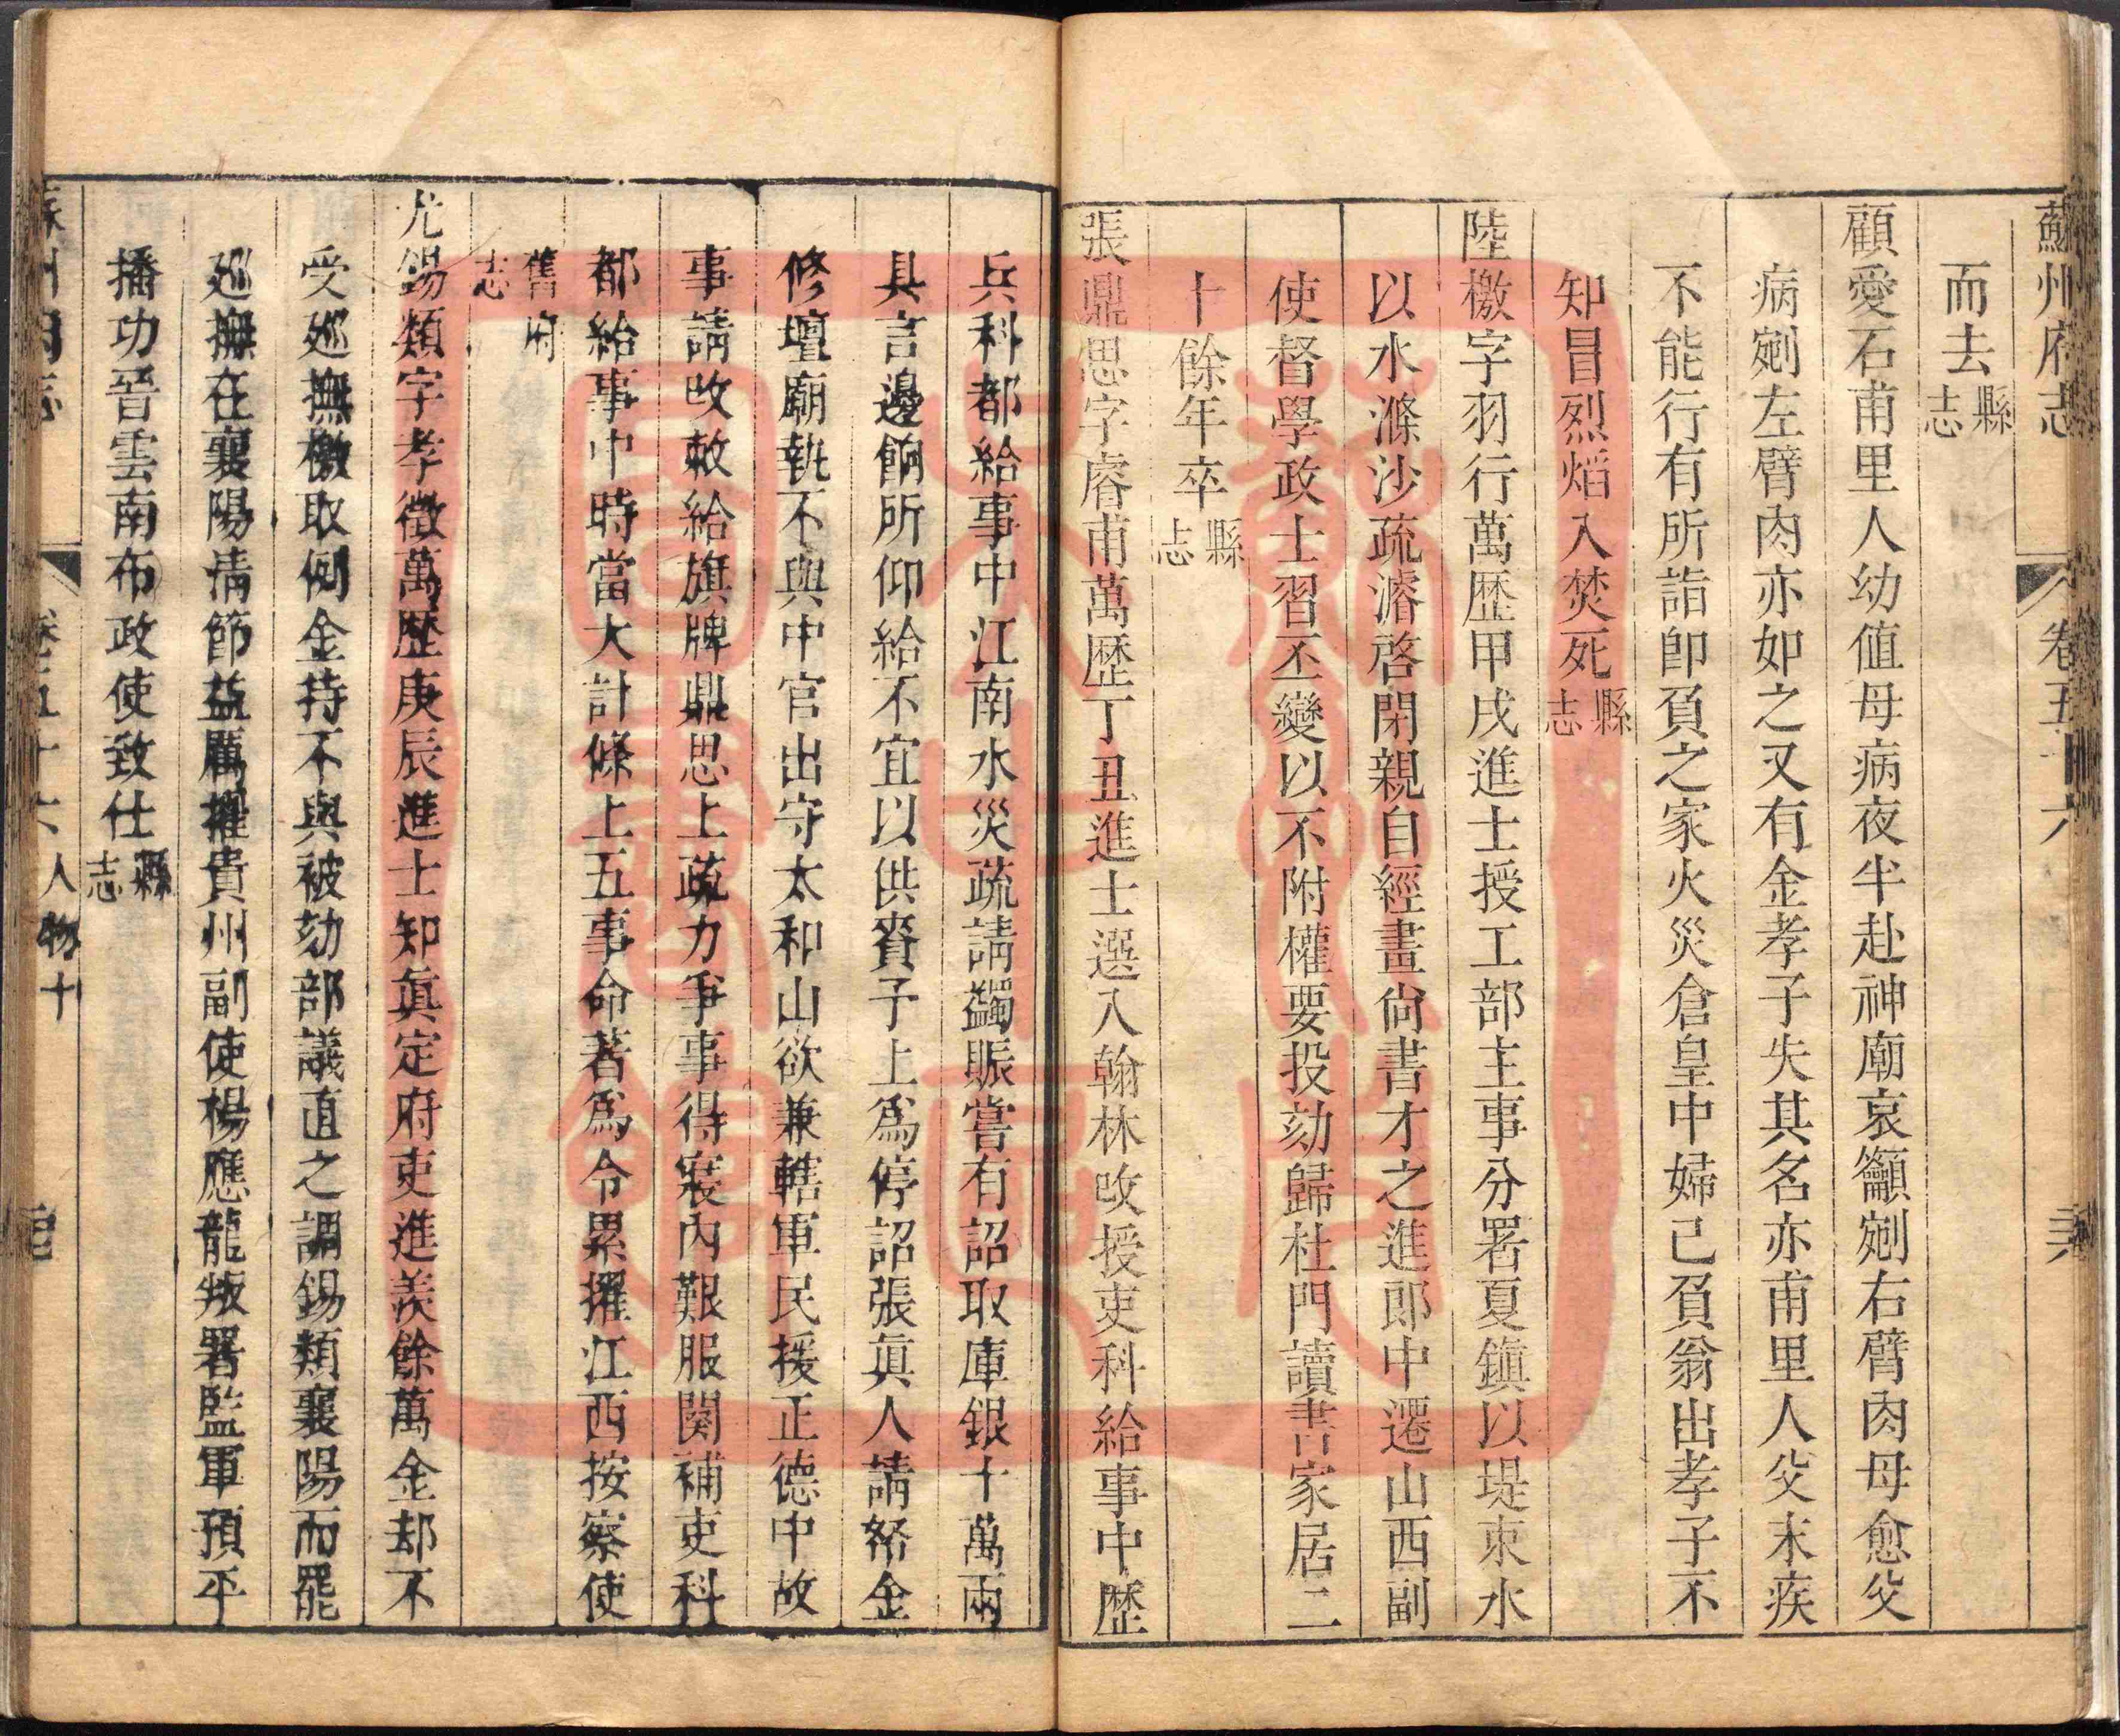 蘇州府志 卷五十六
而去縣志
顧愛石甫里人幼值母病夜半赴神廟哀籲剜右臂肉母愈父
病剜左臂肉亦如之又有金孝子失其名亦甫里人父末疾
不能行有所詣卽負之家火災倉皇中婦已負翁出孝子不
知冒烈熖入焚死縣志
陸檄字羽行萬歷甲戌進士授工部主事分署夏鎭以堤束水
以水滌沙疏濬啓閉親自經畫尙書才之進郎中遷山西副
使督學政士習丕變以不附權要投劾歸杜門讀書家居二
十餘年卒縣志
張鼎思字睿甫萬歷丁丑進士選入翰林改授吏科給事中歷
兵科都給事中江南水災疏請蠲賑嘗有詔取庫銀十萬兩
具言邊餉所仰給不宜以供賚予上爲停詔張眞人請帑金
修壇廟執不與中官出守太和山欲兼轄軍民援正德中故
事請改敕給旗牌鼎思上疏力爭事得寢內艱服闋補吏科
都給事中時當大計條上五事命著爲令累擢江西按察使
舊府志
尤錫類字孝徵萬歷庚辰進士知眞定府吏進羨餘萬金却不
受廵撫檄取例金持不與被劾部議直之調錫類襄陽而罷
廵撫在襄陽淸節益厲擢貴州副使楊應龍叛署監軍預平
播功晉雲南布政使致仕縣志
蘇州府志 卷五十六 人物十